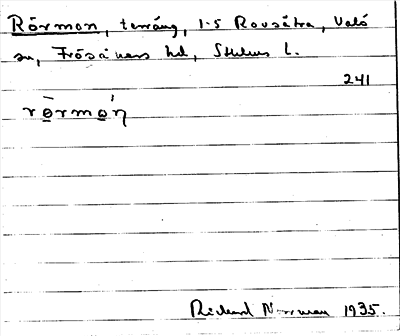 Rörmon, terräng, 1-5 Rovsätra, Valö
sn, Frösåkers hd, Sthlms l.
241
rö̱rmo̱ŋ
Richard Norrman 1935.